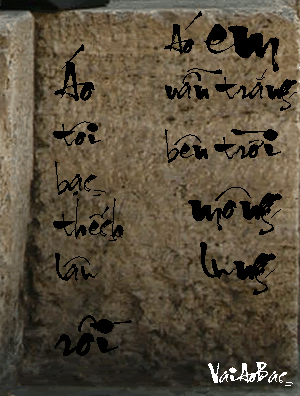 Áo
tôi
bạc
thếch
lâu
rồi
Áo em
vẫn trắng
bên trời
mông
lung
VaiAoBac_